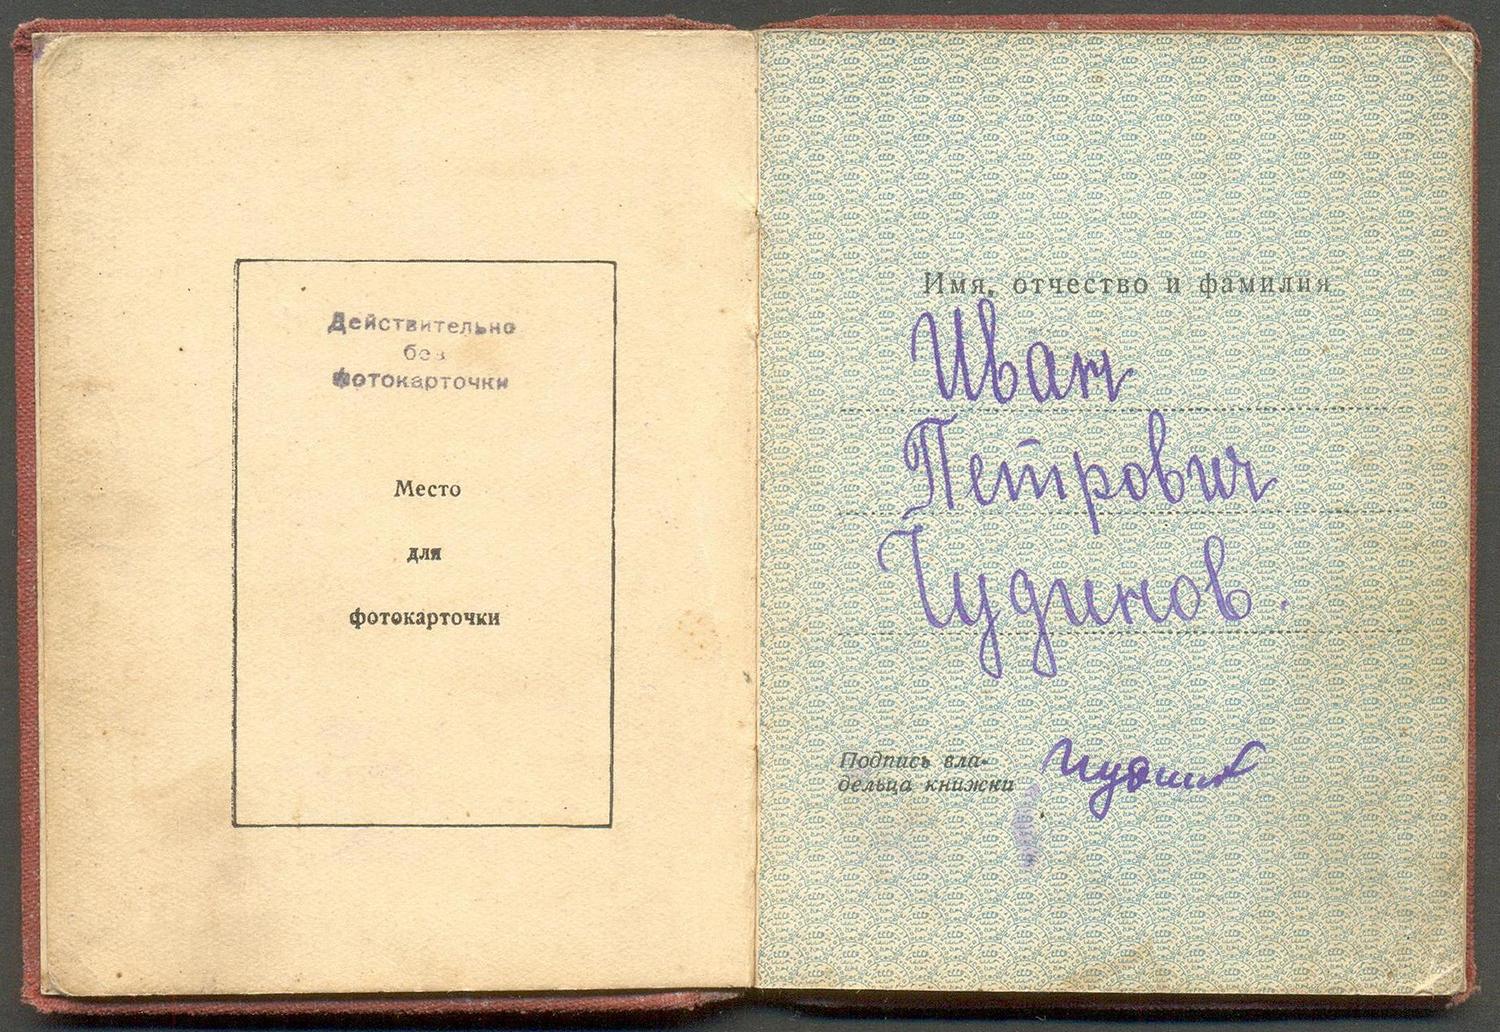 Действительно
без
фотокарточки
Место
для
фотокарточки
Имя, отчество и фамилия
Иван
Петрович
Чудинов.
Подпись вла-
дельца книжки